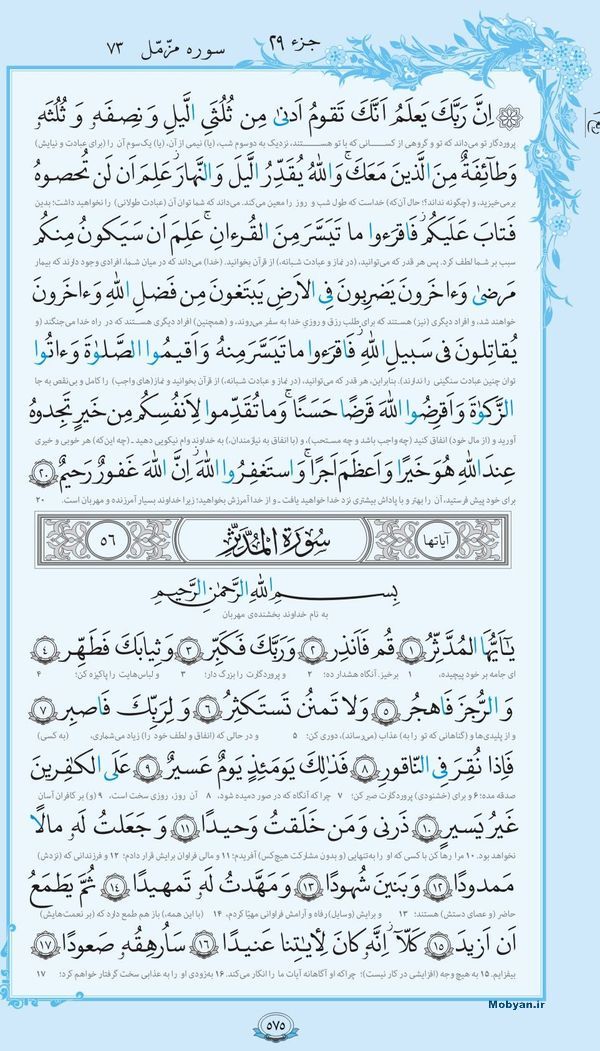 جزء ۲۹
سوره مزّمّل ۷۳
اِنَّ رَبَّكَ يَعلَمُ اَنَّكَ تَقومُ اَدنىٰ مِن ثُلُثَىِ الَّيلِ وَ نِصفَهٗ وَ ثُلُثَهٗ
پروردگار تو می‌داند که تو و گروهی از کسانی که با تو هستند، نزدیک به دوسوم شب، (یا) نیمی از آن، (یا) یک‌سوم آن را (برای عبادت و نیایش)
وَ طاۤئِفَةٌ مِنَ الَّذينَ مَعَكَ ۚ وَ اللهُ يُقَدِّرُ الَّيلَ وَ النَّهارَ ۚ عَلِمَ اَن لَن تُحصوهُ
برمی‌خیزید، و (چگونه نداند؟! حال آن‌که) خداست که طول شب و روز را معین می‌کند. می‌داند که شما توان آن (عبادت طولانی) را نخواهید داشت؛ بدین
فَتابَ عَلَيكُم ۖ فَاقرَءوا ما تَيَسَّرَ مِنَ القُرءانِ ۚ عَلِمَ اَن سَيَكونُ مِنكُم
سبب بر شما لطف کرد. پس هر قدر که می‌توانید، (در نماز و عبادت شبانه،) از قرآن بخوانید. (خدا) می‌داند که در میان شما، افرادی وجود دارند که بیمار
مَرضىٰ ۙ وَ ءاخَرونَ يَضرِبونَ فِى الاَرضِ يَبتَغونَ مِن فَضلِ اللهِ ۙ وَ ءاخَرونَ
خواهند شد، و افراد دیگری (نیز) هستند که برای طلب رزق و روزیِ خدا به سفر می‌روند، و (همچنین) افراد دیگری هستند که در راه خدا می‌جنگند (و
يُقاتِلونَ فى سَبيلِ اللهِ ۖ فَاقرَءوا ما تَيَسَّرَ مِنهُ ۚ وَ اَقيمُوا الصَّلوٰةَ وَ ءاتُوا
توان چنین عبادت سنگینی را ندارند). بنابراین، هر قدر که می‌توانید، (در نماز و عبادت شبانه،) از قرآن بخوانید و نماز(های واجب) را کامل و بی‌نقص به جا
الزَّكوٰةَ وَ اَقرِضُوا اللهَ قَرضًا حَسَنًا ۚ وَ ما تُقَدِّموا لِاَنفُسِكُم مِن خَيرٍ تَجِدوهُ
آورید و (از مال خود) انفاق کنید (چه واجب باشد و چه مستحب)، و (با انفاق به نیازمندان،) به خداوند وام نیکویی دهید ـ (چه این‌که) هر خوبی و خیری
عِندَ اللهِ هُوَ خَيرًا وَ اَعظَمَ اَجرًا ۚ وَ استَغفِرُوا اللهَ ۖ اِنَّ اللهَ غَفورٌ رَحيمٌ ۲۰
برای خود پیش فرستید، آن را بهتر و با پاداش بیشتری نزد خدا خواهید یافت ـ و از خدا آمرزش بخواهید؛ زیرا خداوند بسیار آمرزنده و مهربان است. ۲۰
آیاتها سُورَةُ المُدَّثِّر ۵۶
بِسمِ اللهِ الرَّحمٰنِ الرَّحيمِ
به نام خداوند بخشنده‌ی مهربان
يـٰۤاَيُّهَا المُدَّثِّرُ ۱ قُم فَاَنذِر ۲ وَ رَبَّكَ فَكَبِّر ۳ وَ ثِيابَكَ فَطَهِّر ۴
ای جامه بر خود پیچیده، ۱ برخیز، آنگاه هشدار ده؛ ۲ و پروردگارت را بزرگ دار؛ ۳ و لباس‌هایت را پاکیزه کن؛ ۴
وَ الرُّجزَ فَاهجُر ۵ وَ لا تَمنُن تَستَكثِرُ ۶ وَ لِرَبِّكَ فَاصبِر ۷
و از پلیدی‌ها و (گناهانی که تو را به) عذاب (می‌رساند)، دوری کن؛ ۵ و در حالی که (انفاق و لطف خود را) زیاد می‌شماری، (به کسی)
فَاِذا نُقِرَ فِى النّاقورِ ۸ فَذٰلِكَ يَومَئِذٍ يَومٌ عَسيرٌ ۹ عَلَى الكٰفِرينَ
صدقه مده؛ ۶ و برای (خشنودی) پروردگارت صبر کن؛ ۷ چرا که آنگاه که در صور دمیده شود، ۸ آن روز، روزی سخت است، ۹ (و) بر کافران آسان
غَيرُ يَسيرٍ ۱۰ ذَرنى وَ مَن خَلَقتُ وَحيدًا ۱۱ وَ جَعَلتُ لَهٗ مالًا
نخواهد بود. ۱۰ مرا رها کن با کسی که او را به‌تنهایی (و بدون مشارکت هیچ‌کس) آفریدم؛ ۱۱ و مالی فراوان برایش قرار دادم؛ ۱۲ و فرزندانی که (نزدش)
مَمدودًا ۱۲ وَ بَنينَ شُهودًا ۱۳ وَ مَهَّدتُ لَهٗ تَمهيدًا ۱۴ ثُمَّ يَطمَعُ
حاضر (و عصای دستش) هستند؛ ۱۳ و برایش (وسایل) رفاه و آرامش فراوانی مهیّا کردم، ۱۴ (با این همه،) باز هم طمع دارد که (بر نعمت‌هایش)
اَن اَزيدَ ۱۵ كَلّاۤ ۖ اِنَّهٗ كانَ لِـٔايٰتِنا عَنيدًا ۱۶ سَاُرهِقُهٗ صَعودًا ۱۷
بیفزایم. ۱۵ به هیچ وجه (افزایشی در کار نیست)؛ چراکه او آگاهانه آیات ما را انکار می‌کند. ۱۶ به‌زودی او را به عذابی سخت گرفتار خواهم کرد؛ ۱۷
۵۷۵
Mobyan.ir